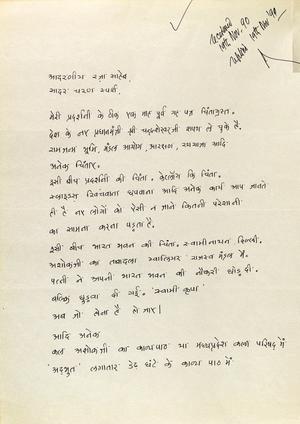 received
14th Nov. 90
replied 14th Nov '90
आदरणीय रज़ा साहेब,
सादर चरण स्पर्श.
मेरी प्रदर्शनी के ठीक एक माह पूर्व यह पत्र चिंताग्रस्त.
देश के नए प्रधानमंत्री श्री चन्द्रशेखरजी शपथ ले चुके हैं.
रामजन्म भूमि, मंडल आयोग, आरक्षण, रथयात्रा आदि
अनेक चिंताएं.
इसी बीच प्रदर्शनी की चिंता. केटलॉग कि चिंता.
स्लाइडस खिंचवाना छपवाना आदि अनेक कार्य आप जानते
ही हैं नए लोगों को ऐसी न जाने कितनी परेशानी
का सामना करना पड़ता है.
इसी बीच भारत भवन की चिंता. स्वामीनाथन दिल्ली.
अशोकजी का तबादला ग्वालियर राजस्व मंडल में.
पत्नी ने अपनी भारत भवन की नौकरी छोड़ दी.
बल्कि छुड़वा दी गई. 'स्वामी कृपा'
अब जो लेना है ले जाए।
आदि अनेक
कल अशोकजी का काव्यपाठ था मध्यप्रदेश कला परिषद में
'अद्भुत' लगातार डेढ़ घंटे के काव्य पाठ में